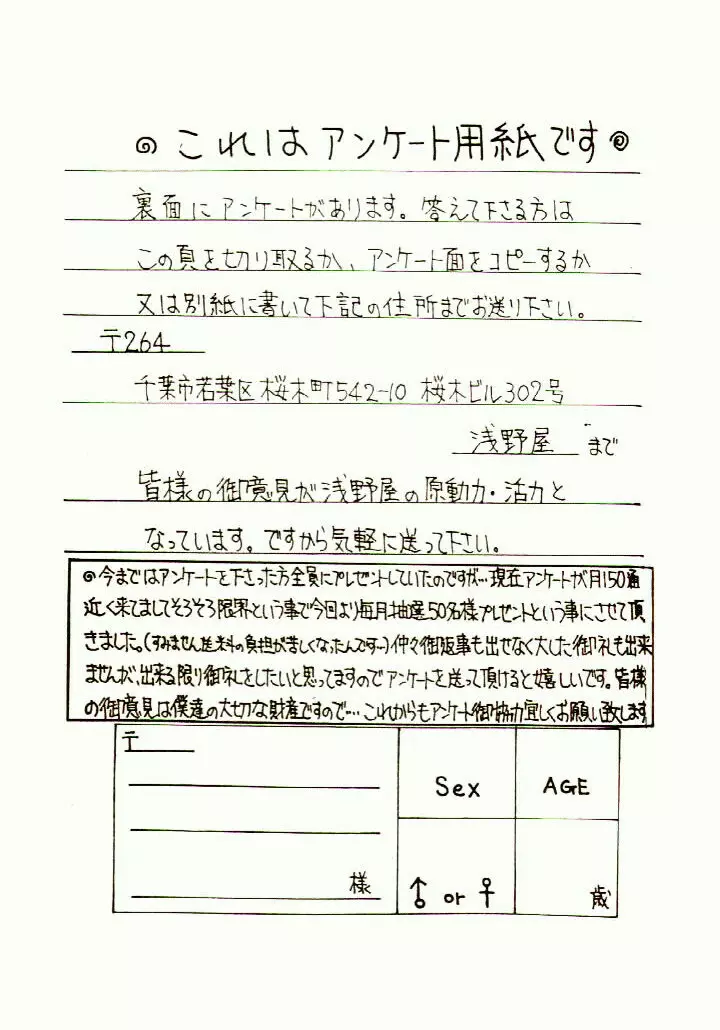 これはアンケート用紙です
裏面にアンケートがあります。答えて下さる方は
この頁を切り取るか、アンケート面をコピーするか
又は別紙に書いて下記の住所までお送り下さい。
〒264
千葉市若葉区桜木町542-10 桜木ビル302号
浅野屋 まで
皆様の御意見が浅野屋の原動力・活力と
なっています。ですから気軽に送って下さい。
今まではアンケートを下さった方全員にプレゼントしていたのですが…現在アンケートが月150通
近く来てましてそろそろ限界という事で今回より毎月抽選50名様プレゼントという事にさせて頂
きました。(すみません送料の負担が苦しくなったんですー)仲々御返事も出せなく大した御礼も出来
ませんが、出来る限り御礼をしたいと思ってますのでアンケートを送って頂けると嬉しいです。皆様
の御意見は僕達の大切な財産ですので…これからもアンケート御協力宜しくお願い致します
〒
Sex
AGE
様
♂ or ♀
歳